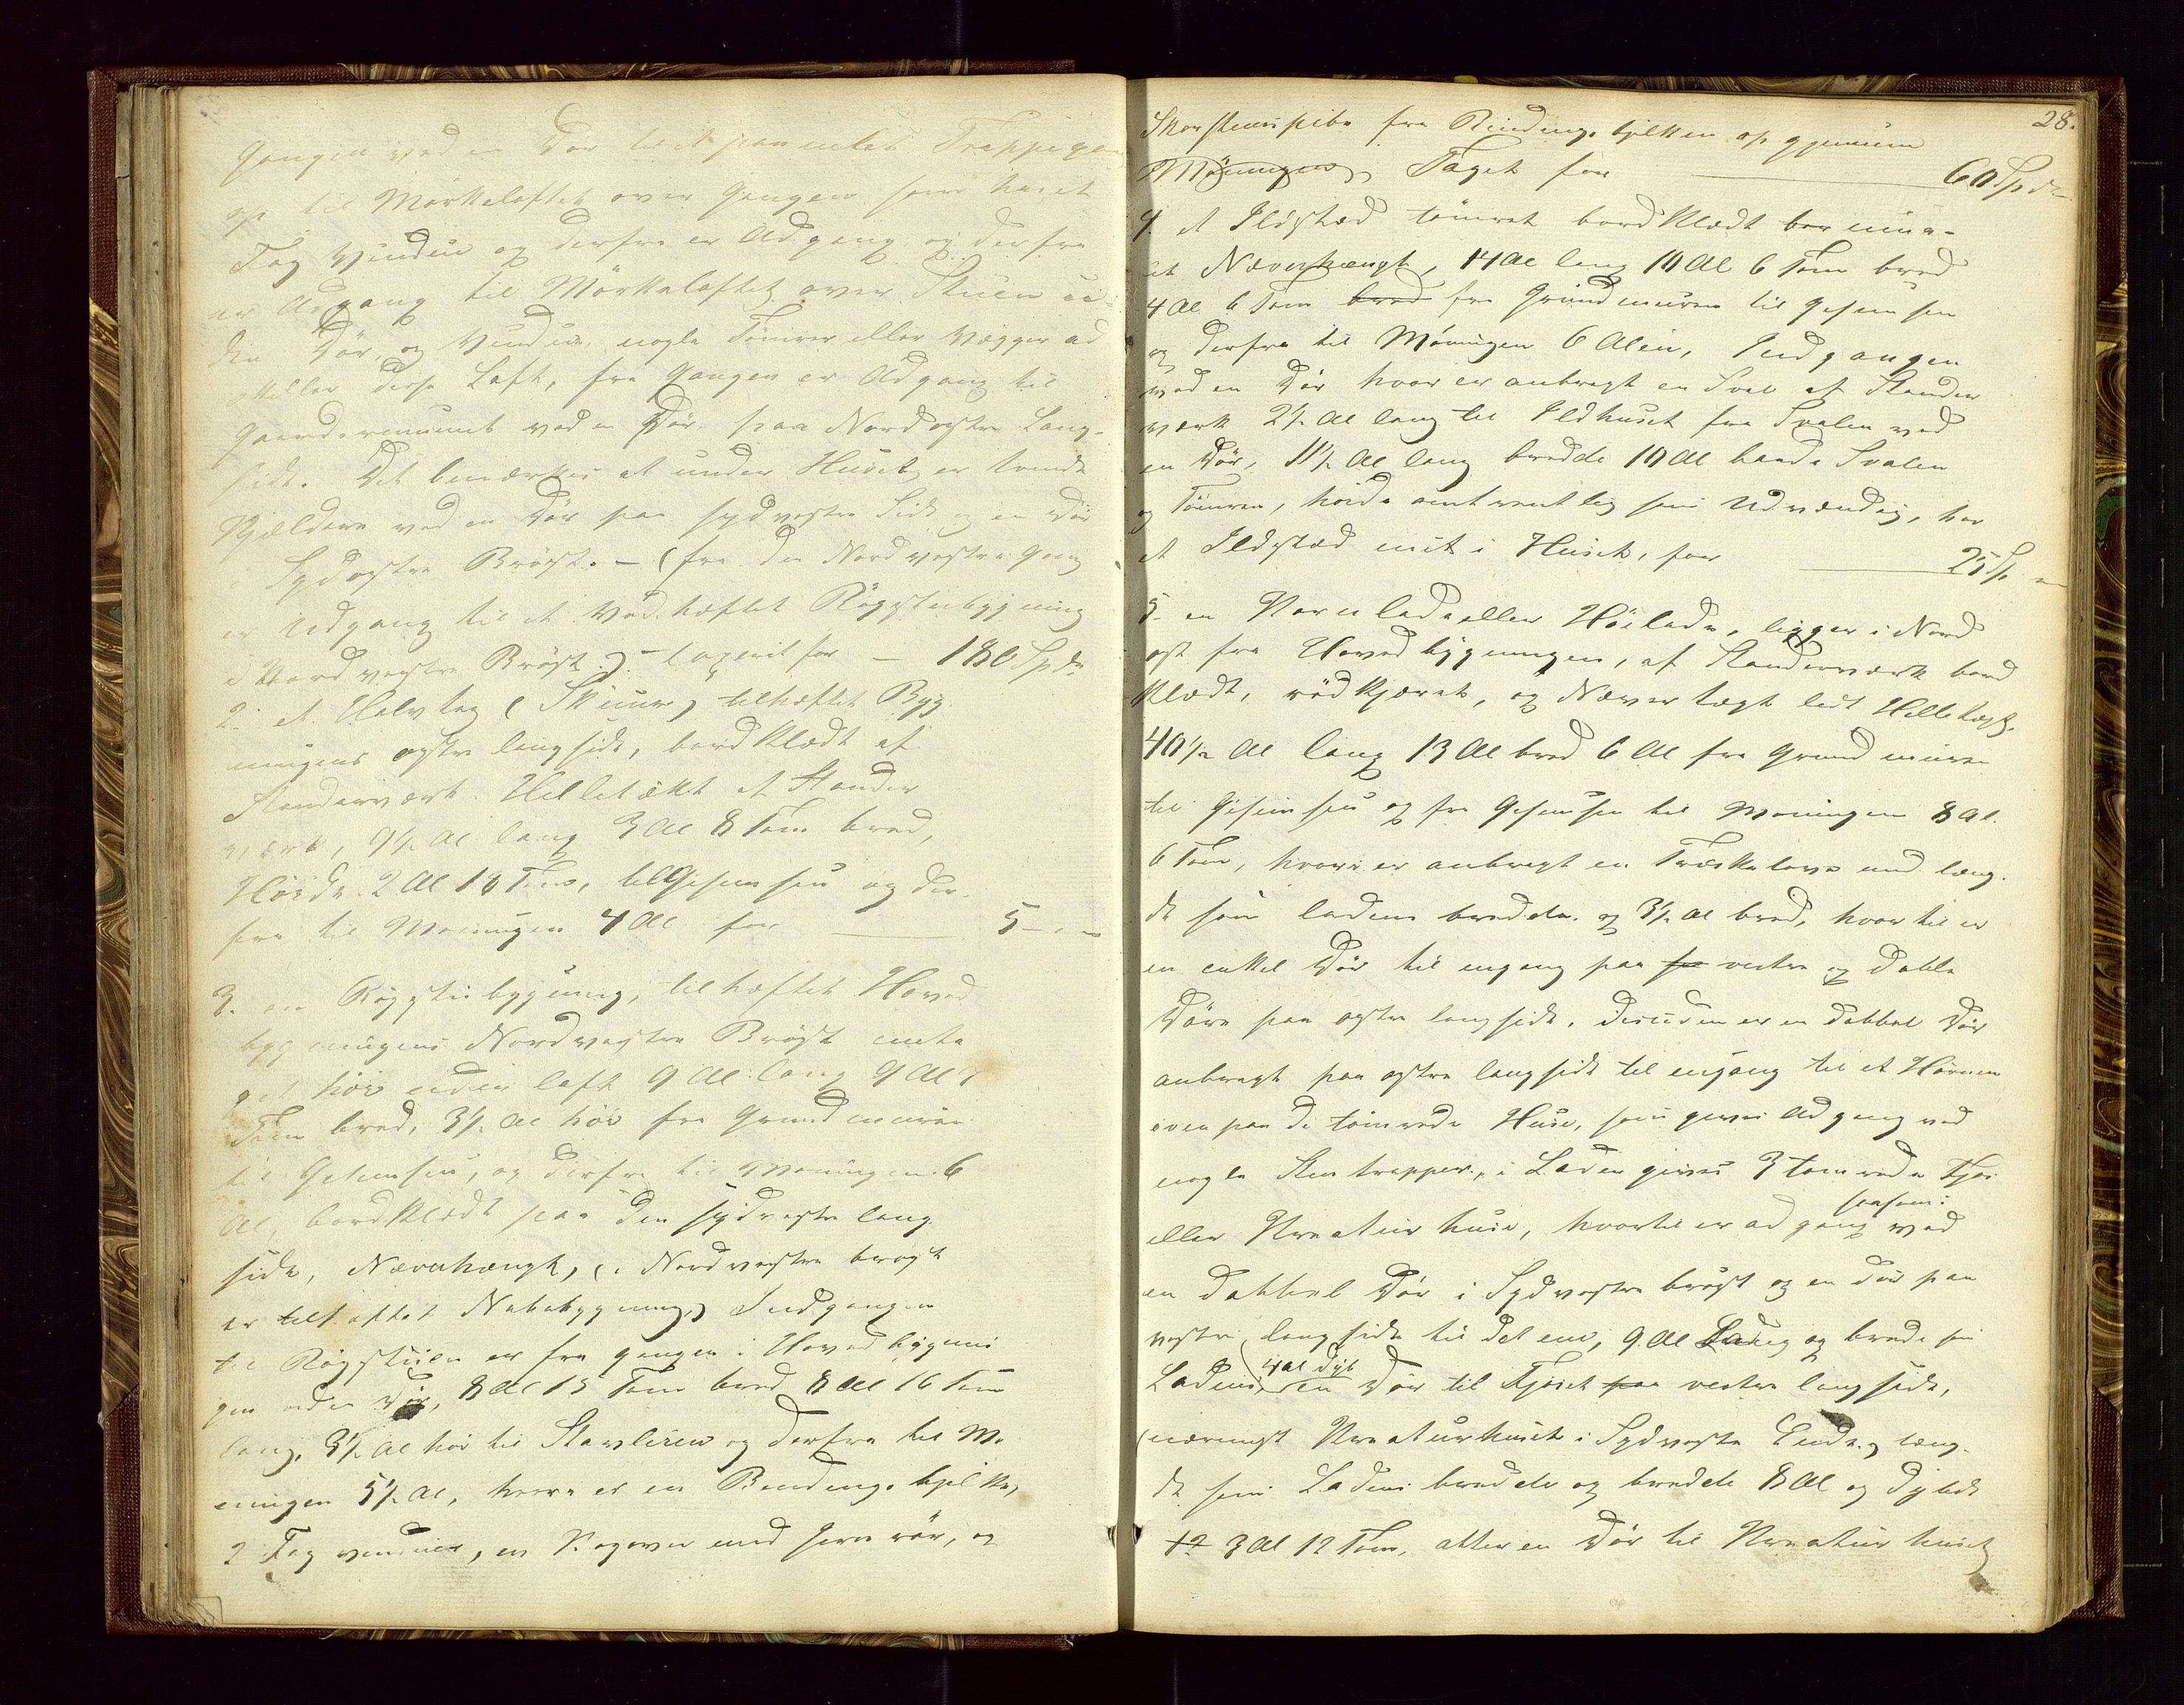 Gangen ved en Dør til et panelet Trappegan
op til Mørkeloftet over Gangen som har et
Fag Vindue og derfra er Adgang og derfra
er Adgang til Mørkeloftet over Stuen u-
den Dør og Vindue, nogle Tømrer eller Vægger ad
skiller disse Loft, fra Gangen er Adgang til
Gaardsrummet ved en Dør paa Nordøstre Lang-
side. Det bemærkes at under Huset er tvende
Kjældere ved en Dør paa sydvestre Side og en Dør
i Sydøstre Brøst. – (fra den Nordvestre Gang
er Udgang til et vedhæftet Røgstubygning
i Nordvestre Brøst.) – taxeret for – 180 Spd
2. et Halvtag (Skuur) tilhæftet Byg
ningens østre langside, bordklædt af
Standerværk. Helletækt et Stander
værk, 9½ Al lang 3 Al 8 Tom bred,
Høide 2 Al 18 Tom, til Gesimsen og der-
fra til Mønningen 4 Al for 5 – „ –
3. en Røgstubygning, tilhæftet Hoved
bygningens Nordvestre Brøst
høi uden loft 9 Al lang 9 Al
Tom bred, 3½ Al høi fra Grundmuren
til Gesimsen, og derfra til Mønningen 6
Al, bordklædt paa den sydvestre lang
side, Næverhængt, (i Nordvestre brøst
er tilhæftet Nabobygning) Indgangen
til Røgstuen er fra gangen i Hovedbygnin
gen ved en Dør, 8 Al 15 Tom bred 8 Al 16 Tom
lang, 3½ Al høi til Stavlinen og derfra til Mø
ningen 5½ Al, hvori er en Bindings bjelke,
2 Fag vinduer, en Kogeovn med Jernrør, og
28.
Skorstenspibe fra Bindings bjelken op gjennem
Mønningen, Taget for 60 Spd
4. et Ildsted tømret bordklædt
et Næverhængt, 14 Al lang 10 Al 6 Tom bred
4 Al 6 Tom bred fra Grundmuren til Gesimsen
og derfra til Mønningen 6 Alen, Indgangen
ved en Dør hvor er anbragt en Sval af Stander
værk 2½ Al lang til Ildhuset fra Svalen ved
en Dør, 11½ Al lang bredde 10 Al baade Svalen
og Tømren, høide omtrentlig som Udvændig, har
et Ildsted mit i Huset, for 25 Sp –
5. en Kornlade eller Høelade, ligger i Nord
ost fra Hovedbygningen, af Standerværk bord
klædt, rødkjæret, og Næver tægt ledt Helletægt,
40½ Al lang 13 Al bred 6 Al fra Grundmuren
til Gesimsen og fra Gesimsen til Mønningen 8 Al.
6 Tom, hvori er anbragt en Træskelove med læng-
de som ladens bredde og 3½ Al bred, hvortil er
en enkel Dør til engang paa fr vestre og dobbe
Døre paa østre langside, desuden er en dobbel Dør
anbragt paa østre langside til engang til et Hørum
oven paa de tømrede Huse, som gives Adgang ved
nogle Stentrapper, i Laden gives 3 tømrede Fjøs
eller Kreaturhuse, hvortil er adgang saasom: ved
en dobbel Dør i Sydvestre brøst og en dør paa
vestre langside til det ene, 9 Al Lang og brede som
Ladens (4 Al dyb en Dør til Fjøset paa vestre langside,
(nærmest Kreaturhuset i Sydvestre Ende) læng-
de som Ladens bredde og bredde 8 Al og Dybde
12 3 Al 12 Tom. atter en Dør til Kreaturhuset